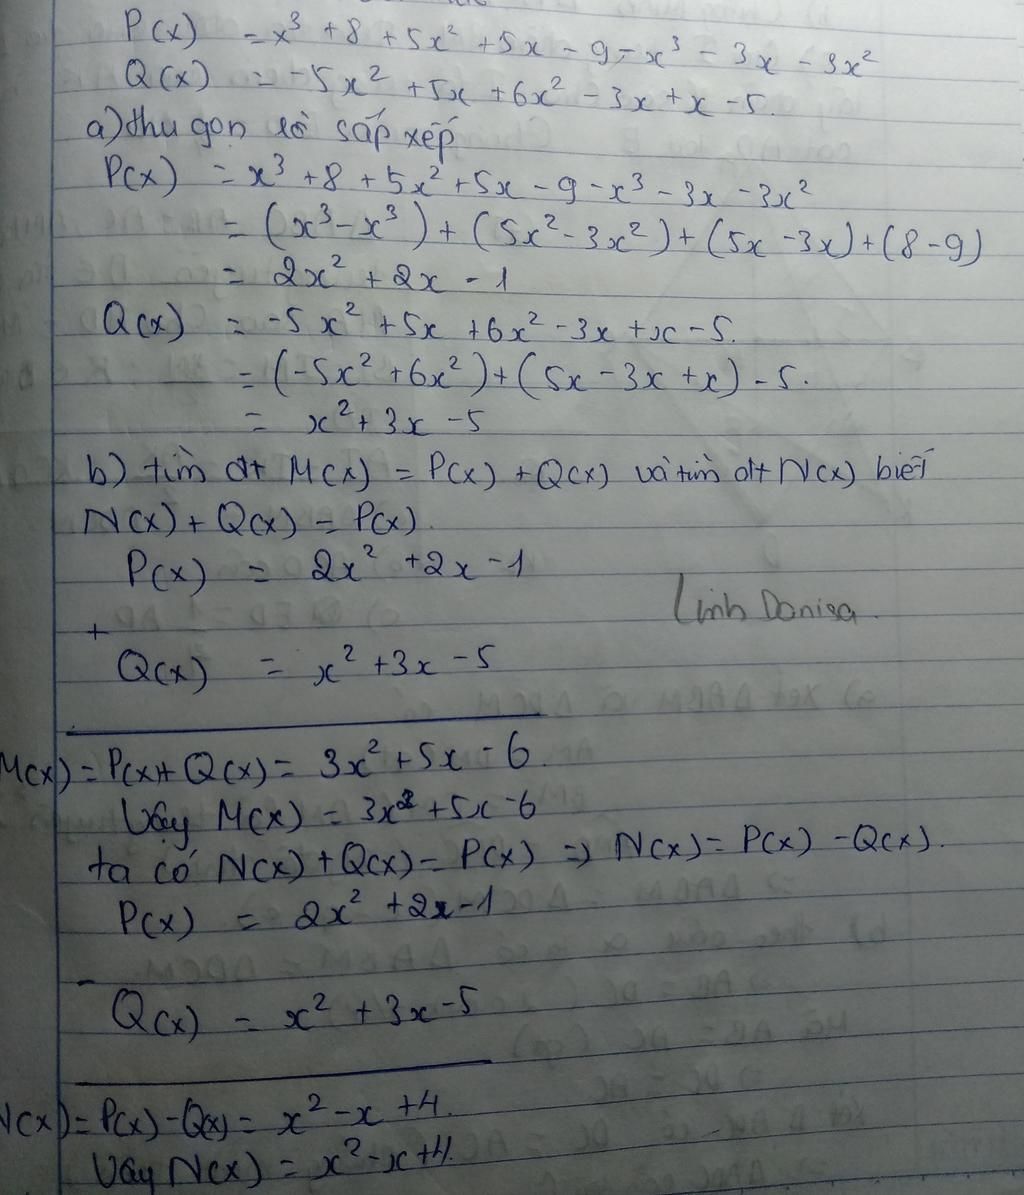 P(x) = x³ + 8 + 5x² + 5x - 9 - x³ - 3x - 3x²
Q(x) = -5x² + 5x + 6x² - 3x + x - 5.
a) thu gọn rồi sắp xếp
P(x) = x³ + 8 + 5x² + 5x - 9 - x³ - 3x - 3x²
= (x³ - x³) + (5x² - 3x²) + (5x - 3x) + (8 - 9)
= 2x² + 2x - 1
Q(x) = -5x² + 5x + 6x² - 3x + x - 5.
= (-5x² + 6x²) + (5x - 3x + x) - 5.
= x² + 3x - 5
b) tìm đt M(x) = P(x) + Q(x) và tìm đt N(x) biết
N(x) + Q(x) = P(x).
P(x) = 2x² + 2x - 1
Linh Danisa.
+
Q(x) = x² + 3x - 5
M(x) = P(x) + Q(x) = 3x² + 5x - 6.
Vậy M(x) = 3x² + 5x - 6
ta có N(x) + Q(x) = P(x) => N(x) = P(x) - Q(x).
P(x) = 2x² + 2x - 1
-
Q(x) = x² + 3x - 5
N(x) = P(x) - Q(x) = x² - x + 4.
Vậy N(x) = x² - x + 4.